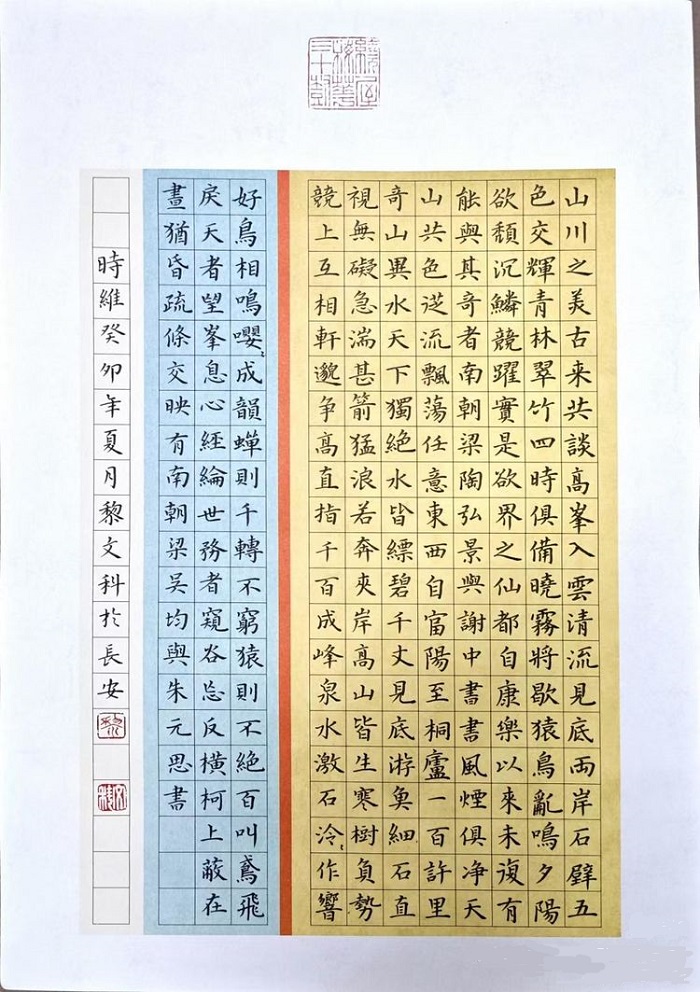 山川之美古来共談高峯入雲清流見底兩岸石壁五
色交輝青林翠竹四時俱備曉霧將歇猿鳥亂鳴夕陽
欲頹沉鱗競躍實是欲界之仙都自康樂以來未復有
能與其奇者南朝梁陶弘景與謝中書書風煙俱净天
山共色從流飄蕩任意東西自富陽至桐廬一百許里
奇山異水天下獨絕水皆縹碧千丈見底游魚細石直
視無礙急湍甚箭猛浪若奔夾岸高山皆生寒樹負勢
競上互相軒邈争高直指千百成峰泉水激石泠々作響
好鳥相鳴嚶々成韻蟬則千轉不窮猿則不絕百叫鳶飛
戾天者望峯息心經綸世務者窺谷忘反橫柯上蔽在
晝猶昏疏條交映有南朝梁吳均與朱元思書
時維癸卯年夏月黎文科於長安
黎
文科